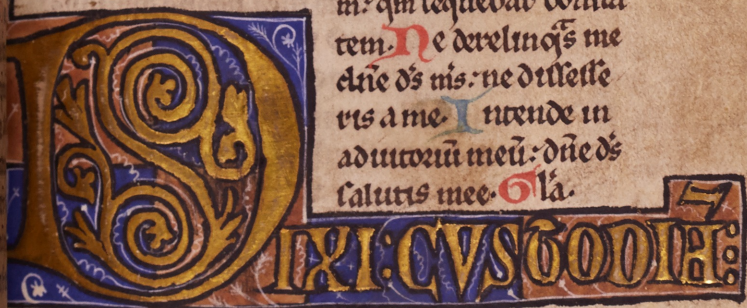 m: qm sequebar bonita
tem. Ne derelinq̄s me
dñe d̄s m̄s: ne discesse
ris a me. Intende in
adiutoriū meū: dñe d̄s
salutis mee. Gl̄a.
DIXI: CVSTODIA: